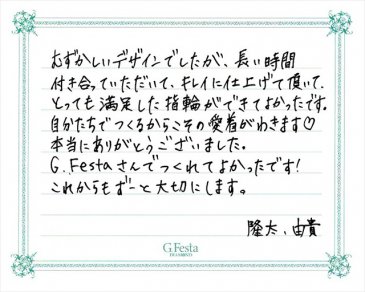 むずかしいデザインでしたが、長い時間
付き合っていただいて、キレイに仕上げて頂いて、
とっても満足した指輪ができてよかったです。
自分たちでつくるからこその愛着がわきます♡
本当にありがとうございました。
G.Festaさんでつくれてよかったです!
これからもずーと大切にします。
隆太、由貴
G.Festa
DIAMOND